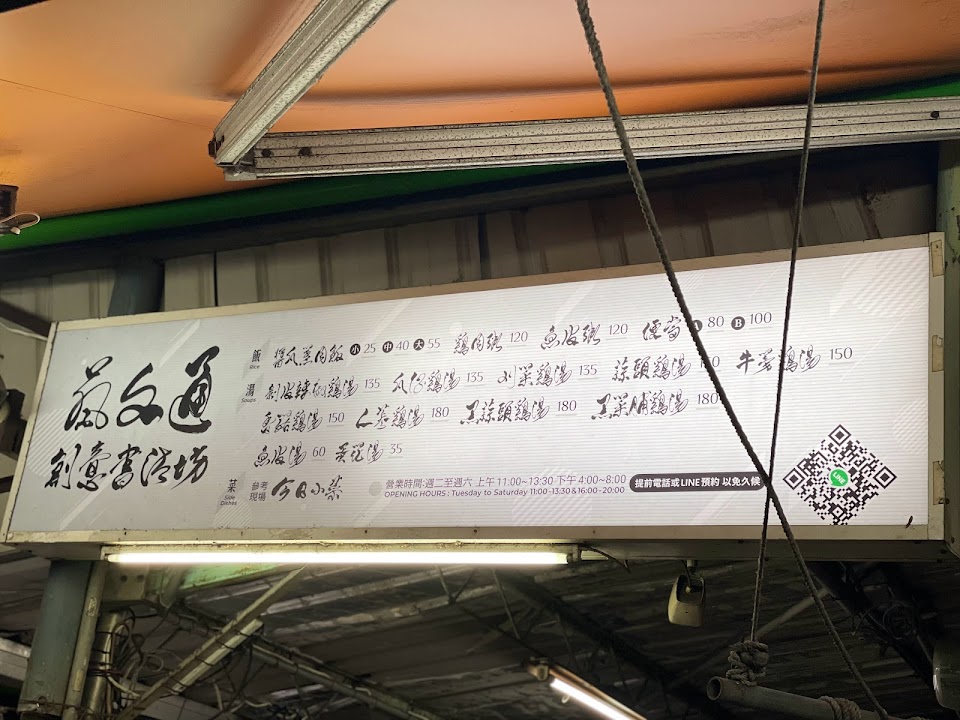 文通
創意書法坊
飯 Rice 肉飯 小 25 中 40 大 55 鷄肉粥 120 魚皮粥 120 便當 80 B 100
湯 Soups 剝皮辣椒鷄湯 135 瓜仔鷄湯 135 刈菜鷄湯 135 蒜頭鷄湯 牛蒡鷄湯 150
鷄湯 150 鷄湯 180 黑蒜頭鷄湯 180 黑菜脯鷄湯 180
魚皮湯 60 湯 35
菜 Side Dishes 參考現場 今日小菜
營業時間:週二至週六 上午 11:00~13:30 下午 4:00~8:00
OPENING HOURS : Tuesday to Saturday 11:00 -13:30 & 16:00 -20:00
提前電話或 LINE 預約 以免久候
LINE